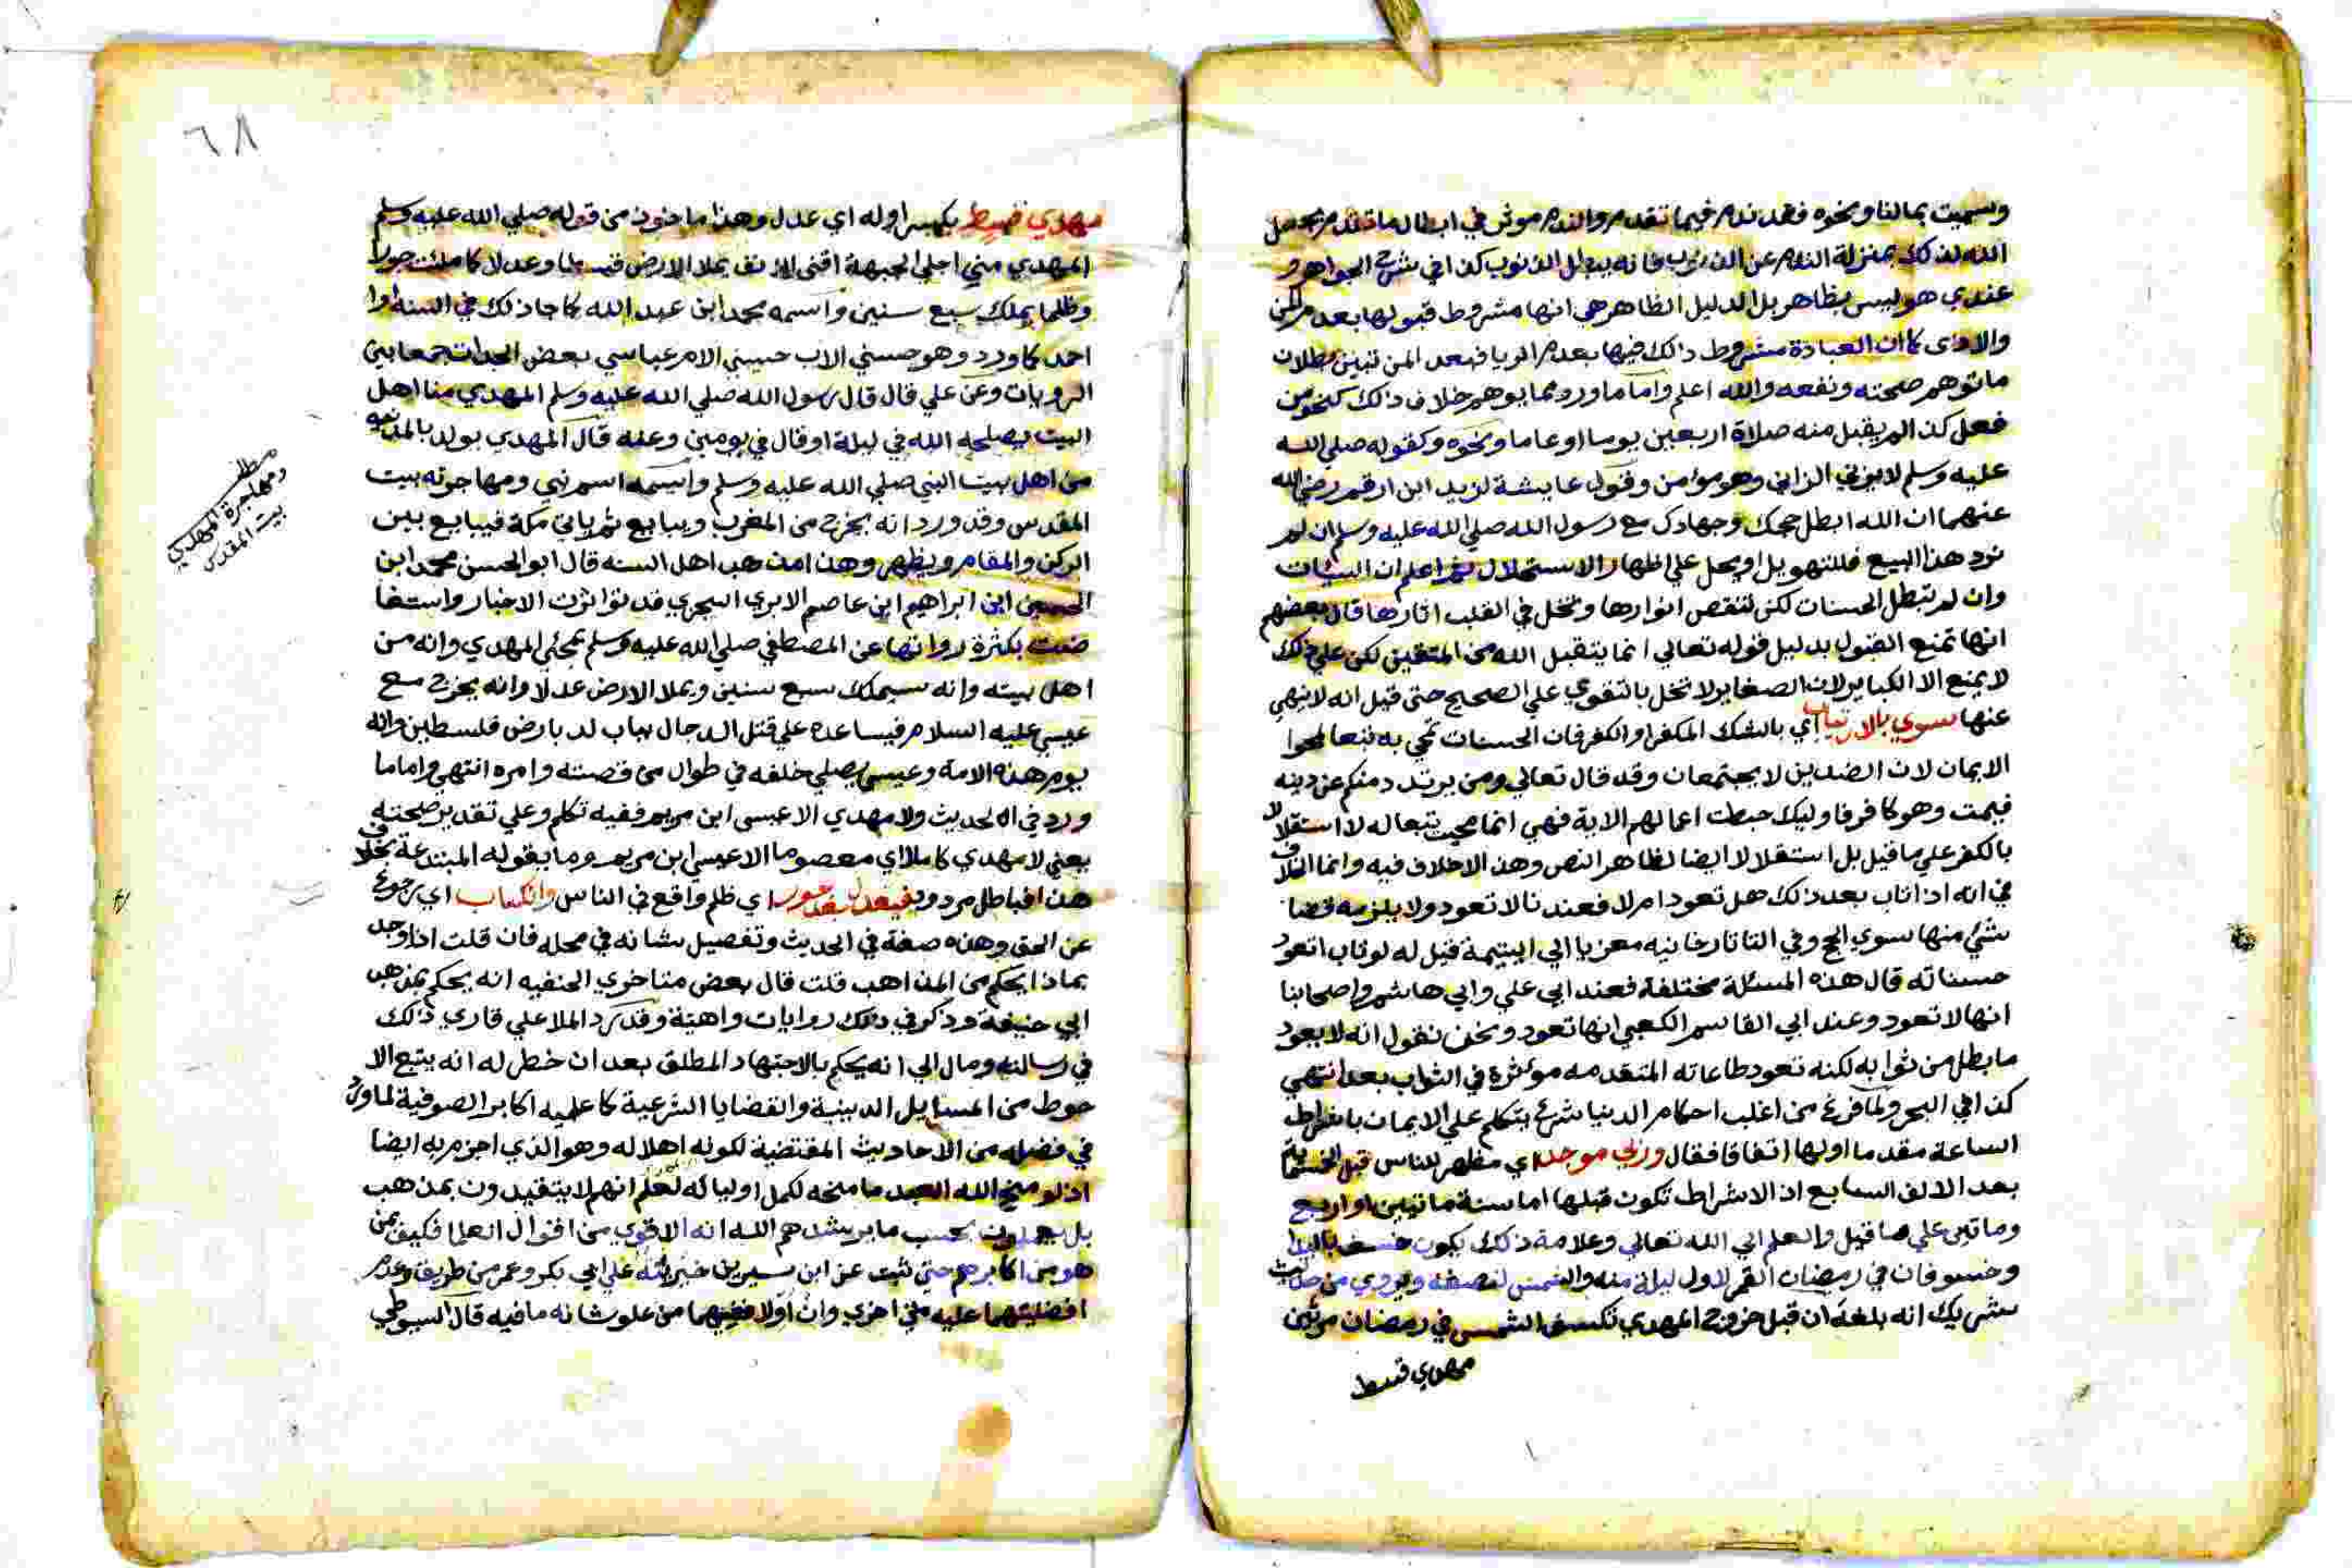 وسميت بمالنا ونحوه فقد ندم فيما تقدم والندم موثر في ابطال ما تقدم نجعل
الله لذلك بمنزلة الندم عن الذنوب فانه يبطل الذنوب كذا في شرح الجواهر و
عندي هو ليس بظاهر بل الدليل الظاهر هي انها مشروط قبولها بعدم المن
والاذى كما ان العبادة مشروط ذلك فيها بعدم الريا فبعد المن تبين بطلان
ما توهم صحته ونفعه والله اعلم واما ما ورد مما يوهم خلاف ذلك كنحو من
فعل كذا لم يقبل منه صلاة اربعين يوما او عاما ونحوه وكقوله صلي الله
عليه وسلم لا يزني الزاني وهو مومن وقول عايشة لزيد ابن ارقم رضي الله
عنهما ان الله ابطل حجك وجهادك مع رسول الله صلي الله عليه وسلم ان لم
ترد هذا البيع فللتهويل او يحمل علي اظهار الاستحلال ثم اعلم ان السيات
وان لم تبطل الحسنات لكن تنقص انوارها وتخل في القلب اثارها قال بعضهم
انها تمنع القبول بدليل قوله تعالي انما يتقبل الله من المتقين لكن علي ذلك
لا يمنع الا الكباير لان الصغاير لا تخل بالتقوي علي الصحيح حتى قيل انه لا ينهي
عنها سوي بالارتياب اي بالشك المكفر او الكفر فان الحسنات تمحي به تبعا لمحوا
الايمان لان الضدين لا يجتمعان وقد قال تعالي ومن يرتدد منكم عن دينه
فيمت وهو كافر فاوليك حبطت اعمالهم الاية فهي انما محيت تبعا له لا استقلالا
بالكفر علي ما قيل بل استقلالا ايضا لظاهر النص وهذا الاخلاف فيه وانما الخلاف
في انه اذا تاب بعد ذلك هل تعود ام لا فعندنا لا تعود ولا يلزمه قضا
شئ منها سوي الحج وفي التاتارخانيه معزيا الي اليتيمة قيل له لو تاب اتعود
حسناته قال هذه المسئلة مختلفة فعند ابي علي وابي هاشم واصحابنا
انها لا تعود وعند ابي القاسم الكعبي انها تعود ونحن نقول انه لا يعود
ما بطل من ثوابه لكنه تعود طاعاته المتقدمه موثرة في الثواب بعد انتهي
كذا في البحر ولما فرغ من اغلب احكام الدنيا شرع يتكلم علي الايمان باشراط
الساعة مقدما اولها اتفاقا فقال وربي موجد اي مظهر للناس قبل
بعد الالف السابع اذ الاشراط تكون قبلها اما سنة ماتيين او اربع
وماتين علي ما قيل والعلم الي الله تعالي وعلامة ذلك يكون خسف
وخسوفان في رمضان القمر لاول ليلة منه والشمس لنصفه ويروي من حديث
شريك انه بلغه ان قبل خروج المهدي تكسف الشمس في رمضان مرتين
مهدي قسط
٦٨
مهدي قسط بكسر اوله اي عدل وهذا ماخوذ من قوله صلي الله عليه وسلم
المهدي مني اجلي الجبهة اقنى الانف يملا الارض قسطا وعدلا كما ملئت جورا
وظلما يملك سبع سنين واسمه محمد ابن عبد الله كما جا ذلك في السنة او
احمد كما ورد وهو حسني الاب حسيني الام عباسي بعض الجدات جمعا بين
الرويات وعن علي قال قال رسول الله صلي الله عليه وسلم المهدي منا اهل
البيت يصلحه الله في ليلة او قال في يومين وعنه قال المهدي يولد بالمدينة
من اهل بيت النبي صلي الله عليه وسلم واسمه اسم نبي ومهاجرته بيت
المقدس وقد ورد انه يخرج من المغرب ويبايع ثم ياتي مكة فيبايع بين
الركن والمقام ويظهر وهذا مذهب اهل السنه قال ابو الحسن محمد ابن
الحسين ابن ابراهيم ابن عاصم الابري السجزي قد تواترت الاخبار واستفا
ضت بكثرة رواتها عن المصطفي صلي الله عليه وسلم بمجئ المهدي وانه من
اهل بيته وانه سيملك سبع سنين ويملا الارض عدلا وانه يخرج مع
عيسي عليه السلام فيساعده علي قتل الدجال بباب لد بارض فلسطين وانه
يوم هذه الامة وعيسى يصلي خلفه في طوال من قصته وامره انتهي واما ما
ورد في الحديث ولا مهدي الا عيسى ابن مريم ففيه تكلم وعلي تقدير صحته
يعني لا مهدي كاملا اي معصوما الا عيسى ابن مريم وما يقوله المبتدعة بخلاف
هذا فباطل مردود فيعدل بعد جور اي ظلم واقع في الناس وانكباب اي رجوع
عن الحق وهذه صفة في الحديث وتفصيل شانه في محله فان قلت اذا وجد
بماذا يحكم من المذاهب قلت قال بعض متاخري الحنفيه انه يحكم بمذهب
ابي حنيفة وذكر في ذلك روايات واهية وقد رد الملا علي قاري ذلك
في رسالته ومال الي انه يحكم بالاجتهاد المطلق بعد ان خطر له انه يتبع الا
حوط من المسايل الدينية والقضايا الشرعية كما عليه اكابر الصوفية لما ورد
في فضله من الاحاديث المقتضية لكونه اهلا له وهو الذي اجزم به ايضا
اذ لو منح الله العبد ما منحه لكمل اوليائه لعلم انهم لا يتقيدون بمذهب
بل يعملون بحسب ما يرشدهم الله انه الاقوي من اقوال العلما فكيف بمن
هو من اكابرهم حتي ثبت عن ابن سيرين خيريته علي ابي بكر وعمر من طريق وعدم
افضليتهما عليه من اخري وان اولا ففيهما من علو شانه ما فيه قال السيوطي
مطلب
ومهاجرة المهدي
بيت المقدس